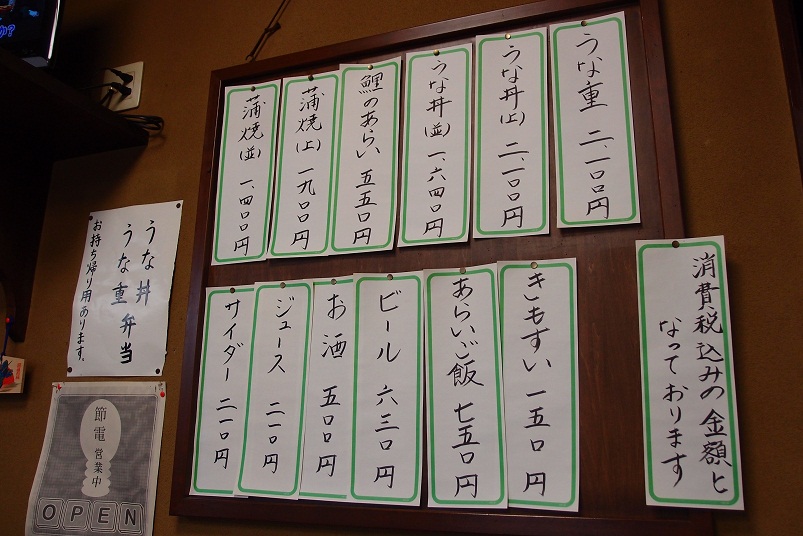 うな重 二、一〇〇円
うな丼(上) 二、一〇〇円
うな丼(並) 一、六四〇円
鯉のあらい 五五〇円
蒲焼(上) 一九〇〇円
蒲焼(並) 一、四〇〇円
きもすい 一五〇円
あらいご飯 七五〇円
ビール 六三〇円
お酒 五〇〇円
ジュース 二一〇円
サイダー 二一〇円
消費税込みの金額と
なっております
うな丼
うな重弁当
お持ち帰り用あります。
節電
営業中
OPEN
か?